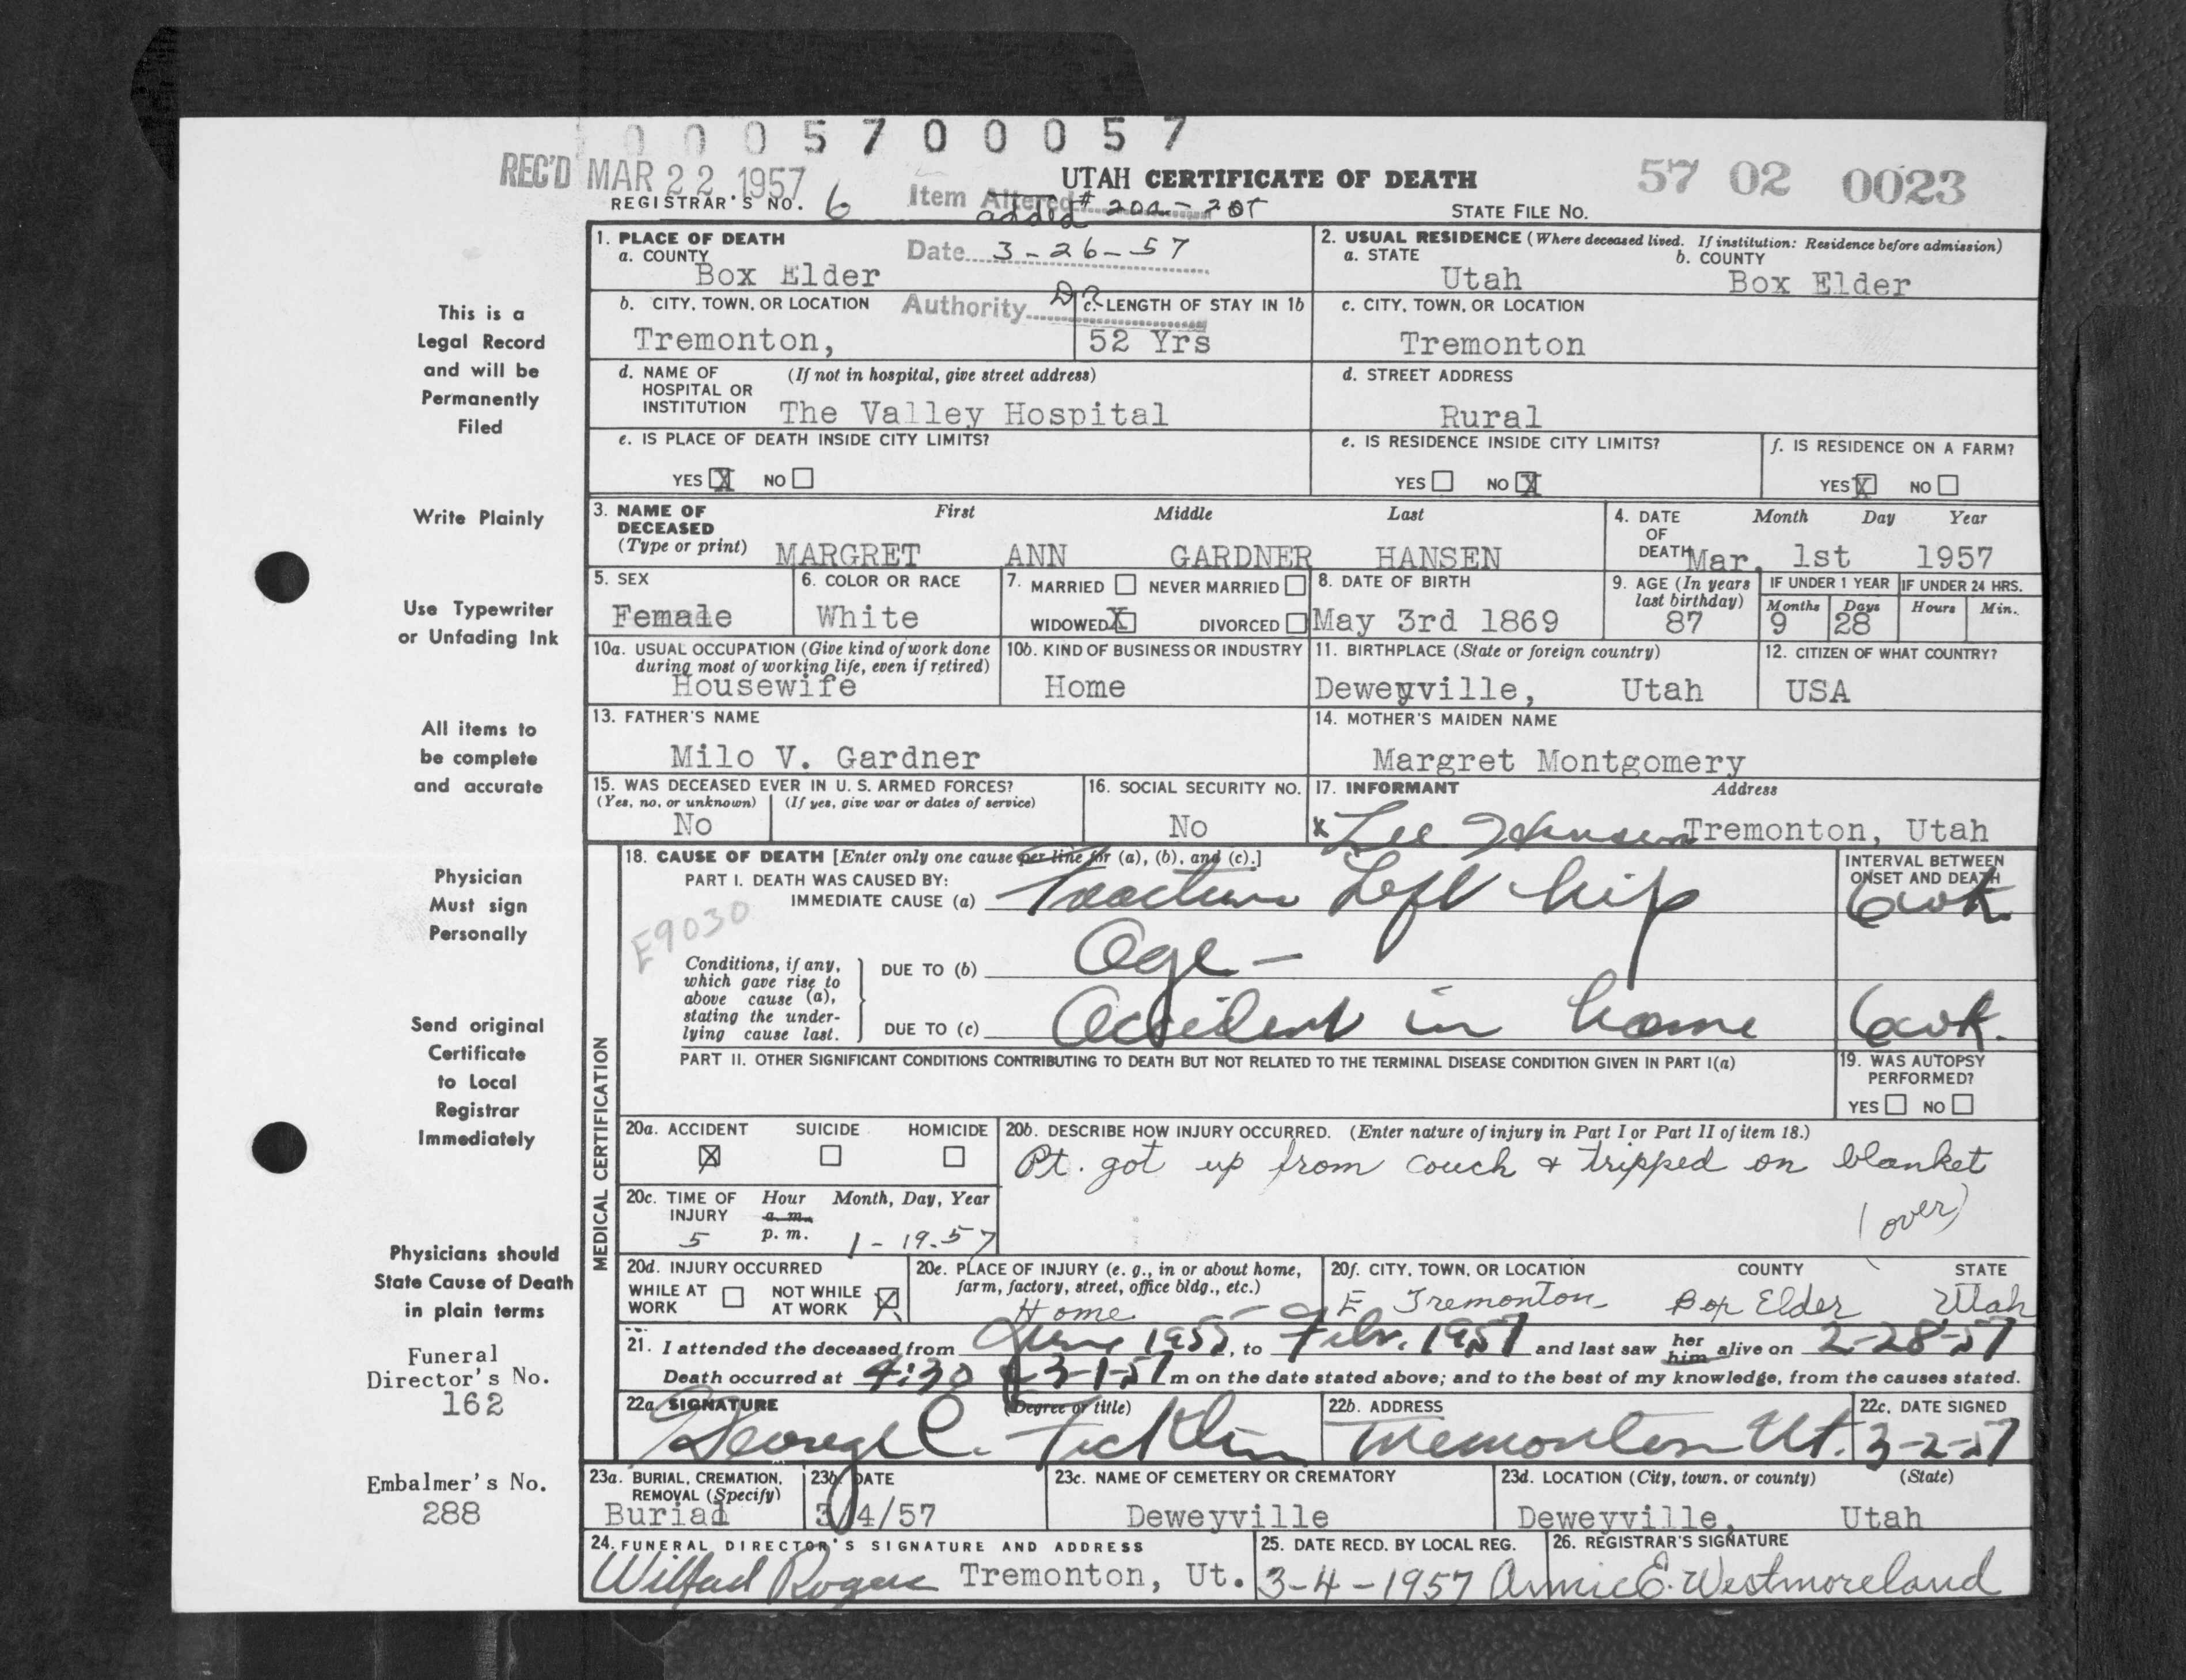 0 0 0 5 7 0 0 0 5 7
REC'D MAR 22 1957
UTAH CERTIFICATE OF DEATH
57 02 0023
REGISTRAR'S NO. 6
Item Altered # 20a - 20f
added
STATE FILE NO.
Date 3-26-57
Authority Dr
1. PLACE OF DEATH
a. COUNTY
Box Elder
2. USUAL RESIDENCE (Where deceased lived. If institution: Residence before admission)
a. STATE
Utah
b. COUNTY
Box Elder
b. CITY, TOWN, OR LOCATION
Tremonton,
c. LENGTH OF STAY IN 1b
52 Yrs
c. CITY, TOWN, OR LOCATION
Tremonton
d. NAME OF HOSPITAL OR INSTITUTION
(If not in hospital, give street address)
The Valley Hospital
d. STREET ADDRESS
Rural
e. IS PLACE OF DEATH INSIDE CITY LIMITS?
YES X NO
e. IS RESIDENCE INSIDE CITY LIMITS?
YES NO X
f. IS RESIDENCE ON A FARM?
YES X NO
3. NAME OF DECEASED
(Type or print)
First Middle Last
MARGRET ANN GARDNER HANSEN
4. DATE OF DEATH
Month Day Year
Mar. 1st 1957
5. SEX
Female
6. COLOR OR RACE
White
7. MARRIED NEVER MARRIED
WIDOWED X DIVORCED
8. DATE OF BIRTH
May 3rd 1869
9. AGE (In years last birthday)
87
IF UNDER 1 YEAR
Months Days
9 28
IF UNDER 24 HRS.
Hours Min.
10a. USUAL OCCUPATION (Give kind of work done during most of working life, even if retired)
Housewife
10b. KIND OF BUSINESS OR INDUSTRY
Home
11. BIRTHPLACE (State or foreign country)
Deweyville, Utah
12. CITIZEN OF WHAT COUNTRY?
USA
13. FATHER'S NAME
Milo V. Gardner
14. MOTHER'S MAIDEN NAME
Margret Montgomery
15. WAS DECEASED EVER IN U. S. ARMED FORCES?
(Yes, no, or unknown) (If yes, give war or dates of service)
No
16. SOCIAL SECURITY NO.
No
17. INFORMANT Address
x Lee Hansen Tremonton, Utah
MEDICAL CERTIFICATION
18. CAUSE OF DEATH [Enter only one cause per line for (a), (b), and (c).]
INTERVAL BETWEEN ONSET AND DEATH
PART I. DEATH WAS CAUSED BY:
IMMEDIATE CAUSE (a) Fracture Left hip
6 wk
E9030
Conditions, if any, which gave rise to above cause (a), stating the underlying cause last.
DUE TO (b) Age -
DUE TO (c) Accident in home
6 wk.
PART II. OTHER SIGNIFICANT CONDITIONS CONTRIBUTING TO DEATH BUT NOT RELATED TO THE TERMINAL DISEASE CONDITION GIVEN IN PART I(a)
19. WAS AUTOPSY PERFORMED?
YES NO
20a. ACCIDENT SUICIDE HOMICIDE
X
20b. DESCRIBE HOW INJURY OCCURRED. (Enter nature of injury in Part I or Part II of item 18.)
Pt. got up from couch & tripped on blanket
(over)
20c. TIME OF INJURY
Hour Month, Day, Year
a. m.
5 p. m. 1-19-57
20d. INJURY OCCURRED
WHILE AT WORK NOT WHILE AT WORK X
20e. PLACE OF INJURY (e. g., in or about home, farm, factory, street, office bldg., etc.)
Home
20f. CITY, TOWN, OR LOCATION COUNTY STATE
E Tremonton Box Elder Utah
21. I attended the deceased from June 1955, to Febr. 1957 and last saw her him alive on 2-28-57
Death occurred at 4:30 3-1-57 m on the date stated above; and to the best of my knowledge, from the causes stated.
22a. SIGNATURE (Degree or title)
George C. Ficklin
22b. ADDRESS
Tremonton Ut.
22c. DATE SIGNED
3-2-57
23a. BURIAL, CREMATION, REMOVAL (Specify)
Burial
23b. DATE
3/4/57
23c. NAME OF CEMETERY OR CREMATORY
Deweyville
23d. LOCATION (City, town, or county) (State)
Deweyville, Utah
24. FUNERAL DIRECTOR'S SIGNATURE AND ADDRESS
Wilfad Rogers Tremonton, Ut.
25. DATE RECD. BY LOCAL REG.
3-4-1957
26. REGISTRAR'S SIGNATURE
Annie E. Westmoreland
This is a
Legal Record
and will be
Permanently
Filed
Write Plainly
Use Typewriter
or Unfading Ink
All items to
be complete
and accurate
Physician
Must sign
Personally
Send original
Certificate
to Local
Registrar
Immediately
Physicians should
State Cause of Death
in plain terms
Funeral
Director's No.
162
Embalmer's No.
288